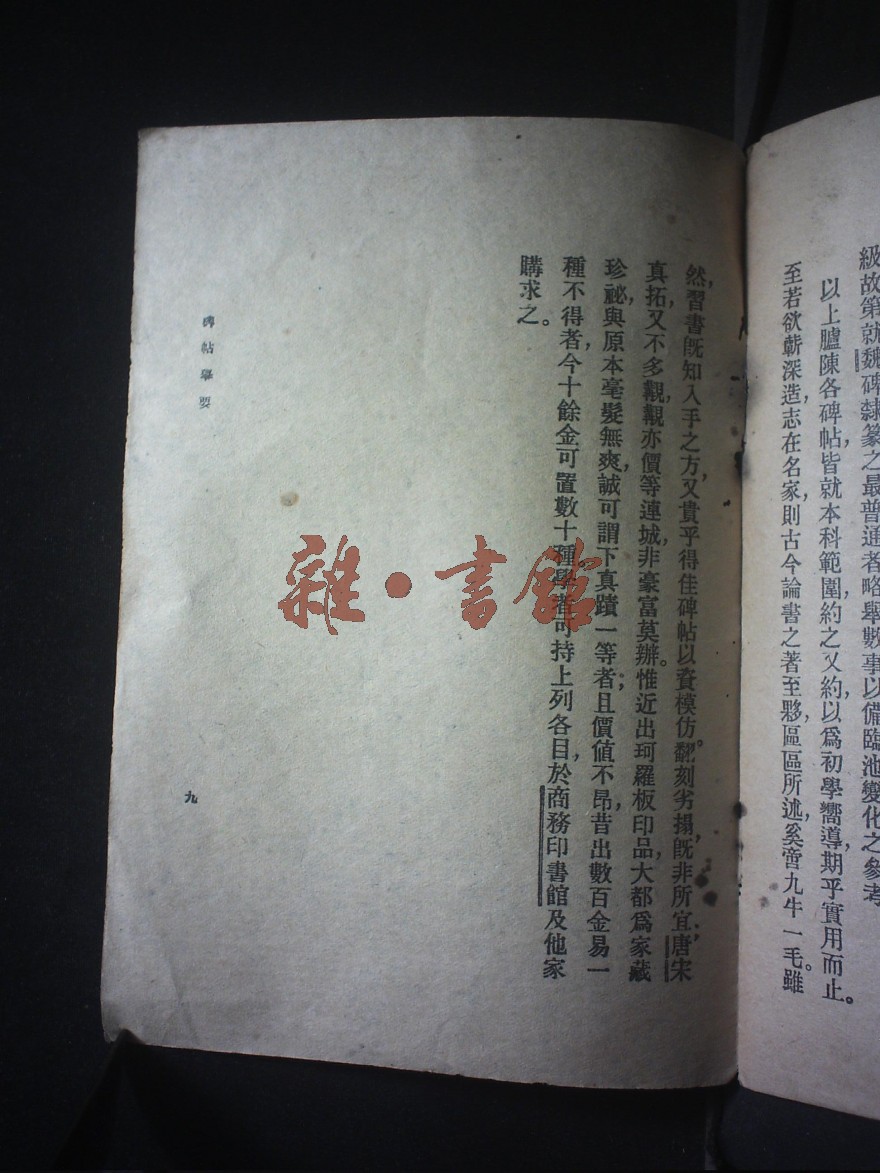 級故第就魏碑隸篆之最普通者略舉數事以備臨池變化之參考
以上臚陳各碑帖皆就本科範圍約之又約以爲初學嚮導期乎實用而止。
至若欲蘄深造志在名家則古今論書之著至夥區區所述奚啻九牛一毛。雖
然,習書旣知入手之方,又貴乎得佳碑帖以資模仿。翻刻劣搨,旣非所宜,唐宋
真拓,又不多觀,觀亦價等連城,非豪富莫辦。惟近出珂羅板印品,大都爲家藏
珍祕,與原本毫髮無爽,誠可謂下真蹟一等者;且價値不昂,昔出數百金易一
種不得者,今十餘金可置數十種。學者可持上列各目,於商務印書館及他家
購求之。
碑帖舉要
九
雜·書館